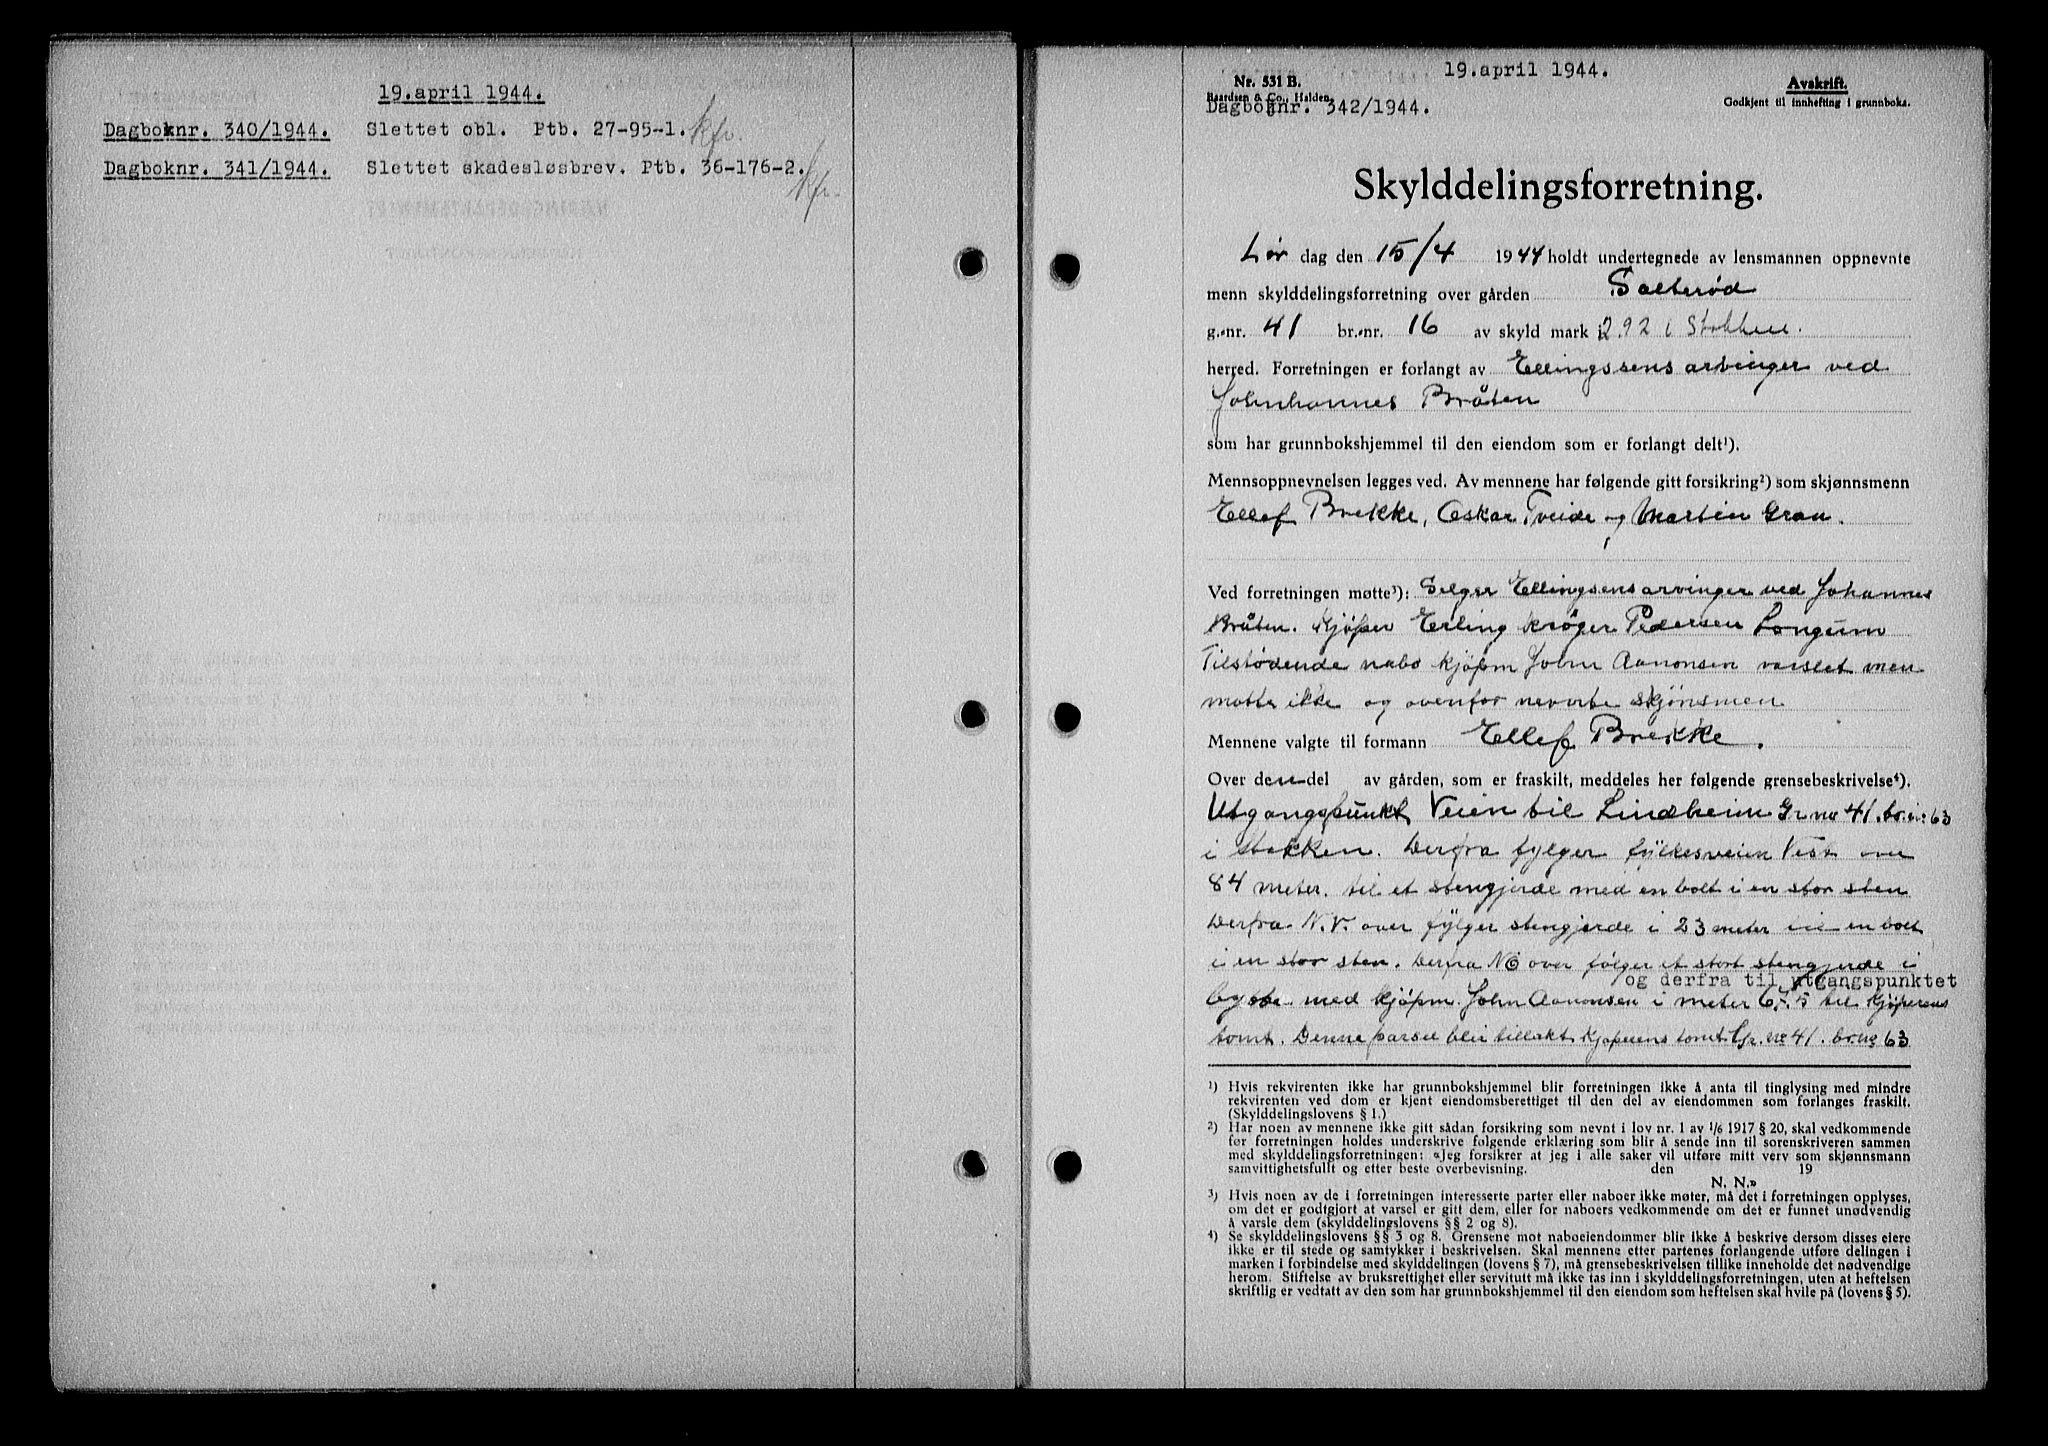 19.april 1944.
Dagboknr. 340/1944. Slettet obl. Ptb. 27-95-1. kfr.
Dagboknr. 341/1944. Slettet skadesløsbrev. Ptb. 36-176-2. kfr.
19.april 1944.
Nr. 531 B.
Baardsen & Co., Halden.
Dagboknr. 342/1944.
Avskrift.
Godkjent til innhefting i grunnboka.
Skylddelingsforretning.
Lør dag den 15/4 1944 holdt undertegnede av lensmannen oppnevnte
menn skylddelingsforretning over gården Salterød
g.-nr. 41 br.-nr. 16 av skyld mark 2.92 i Stokken.
herred. Forretningen er forlangt av Ellingssens arvinger ved
Johnhannes Bråten
som har grunnbokshjemmel til den eiendom som er forlangt delt¹).
Mennsoppnevnelsen legges ved. Av mennene har følgende gitt forsikring²) som skjønnsmenn
Ellef Brekke, Oskar Tveide og Martin Gran.
Ved forretningen møtte³): Selger Ellingsens arvinger ved Johannes
Bråten. Kjøper Erling Krøger Pedersen Longum
Tilstødende nabo kjöpm John Aanonsen varslet men
møtte ikke og ovenfor nevnte skjönsmen
Mennene valgte til formann Ellef Brekke.
Over den del av gården, som er fraskilt, meddeles her følgende grensebeskrivelse⁴).
Utgangspunkt Veien til Lindheim Gr no 41. br.nr 63
i Stokken. Derfra fylger fylkesveien Vest over
84 meter. til et stengjerde med en bolt i en stor sten
Derfra N.V. over fylger stengjerde i 23 meter til en bolt
i en stor sten. Derfra NØ over fölger et stort stengjerde i
og derfra til utgangspunktet
bytte med kjöpm. John Aanonsen i meter 67.5 til Kjöperens
tomt. Denne parsel blir tillakt Kjøperens tomt Gr. no 41. br.no 63
¹) Hvis rekvirenten ikke har grunnbokshjemmel blir forretningen ikke å anta til tinglysing med mindre
rekvirenten ved dom er kjent eiendomsberettiget til den del av eiendommen som forlanges fraskilt.
(Skylddelingslovens § 1.)
²) Har noen av mennene ikke gitt sådan forsikring som nevnt i lov nr. 1 av 1/6 1917 § 20, skal vedkommende
før forretningen holdes underskrive følgende erklæring som blir å sende inn til sorenskriveren sammen
med skylddelingsforretningen: «Jeg forsikrer at jeg i alle saker vil utføre mitt verv som skjønnsmann
samvittighetsfullt og etter beste overbevisning. den 19
N. N.»
³) Hvis noen av de i forretningen interesserte parter eller naboer ikke møter, må det i forretningen opplyses,
om det er godtgjort at varsel er gitt dem, eller for naboers vedkommende om det er funnet unødvendig
å varsle dem (skylddelingslovens §§ 2 og 8).
⁴) Se skylddelingslovens §§ 3 og 8. Grensene mot naboeiendommer blir ikke å beskrive dersom disses eiere
ikke er til stede og samtykker i beskrivelsen. Skal mennene etter partenes forlangende utføre delingen i
marken i forbindelse med skylddelingen (lovens § 7), må grensebeskrivelsen tillike inneholde det nødvendige
herom. Stiftelse av bruksrettighet eller servitutt må ikke tas inn i skylddelingsforretningen, uten at heftelsen
skriftlig er vedtatt av den som har grunnbokshjemmel til den eiendom som heftelsen skal hvile på (lovens § 5).